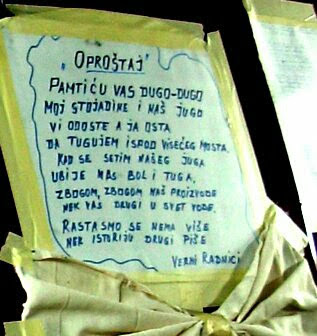 "OPROŠTAJ"
PAMTIĆU VAS DUGO-DUGO
MOJ STOJADINE I NAŠ JUGO
VI ODOSTE A JA OSTA
DA TUGUJEM ISPOD VISEĆEG MOSTA.
KAD SE SETIM NAŠEG JUGA
UBIJE NAS BOL I TUGA,
ZBOGOM, ZBOGOM NAŠ PROIZVODE
NEK VAS DRUGI U SVET VODE.
RASTASMO SE NEMA VIŠE
NEK ISTORIJU DRUGI PIŠE
VERNI RADNICI